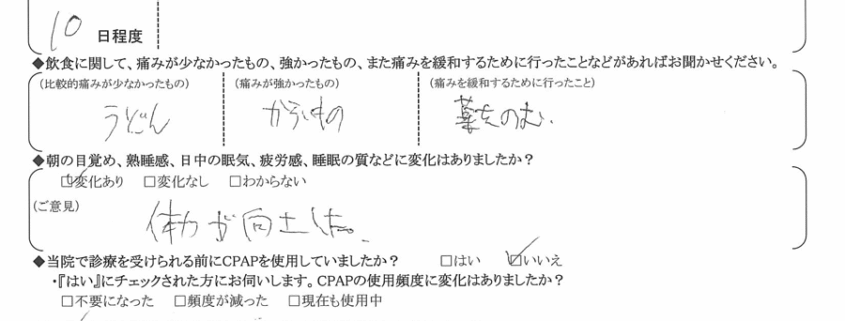 10 日程度
◆飲食に関して、痛みが少なかったもの、強かったもの、また痛みを緩和するために行ったことなどがあればお聞かせください。
(比較的痛みが少なかったもの) (痛みが強かったもの) (痛みを緩和するために行ったこと)
うどん からいもの 薬をのむ、
◆朝の目覚め、熟睡感、日中の眠気、疲労感、睡眠の質などに変化はありましたか?
☑変化あり □変化なし □わからない
(ご意見)
体力が向上した。
◆当院で診療を受けられる前にCPAPを使用していましたか? □はい ☑いいえ
・『はい』にチェックされた方にお伺いします。CPAPの使用頻度に変化はありましたか?
□不要になった □頻度が減った □現在も使用中